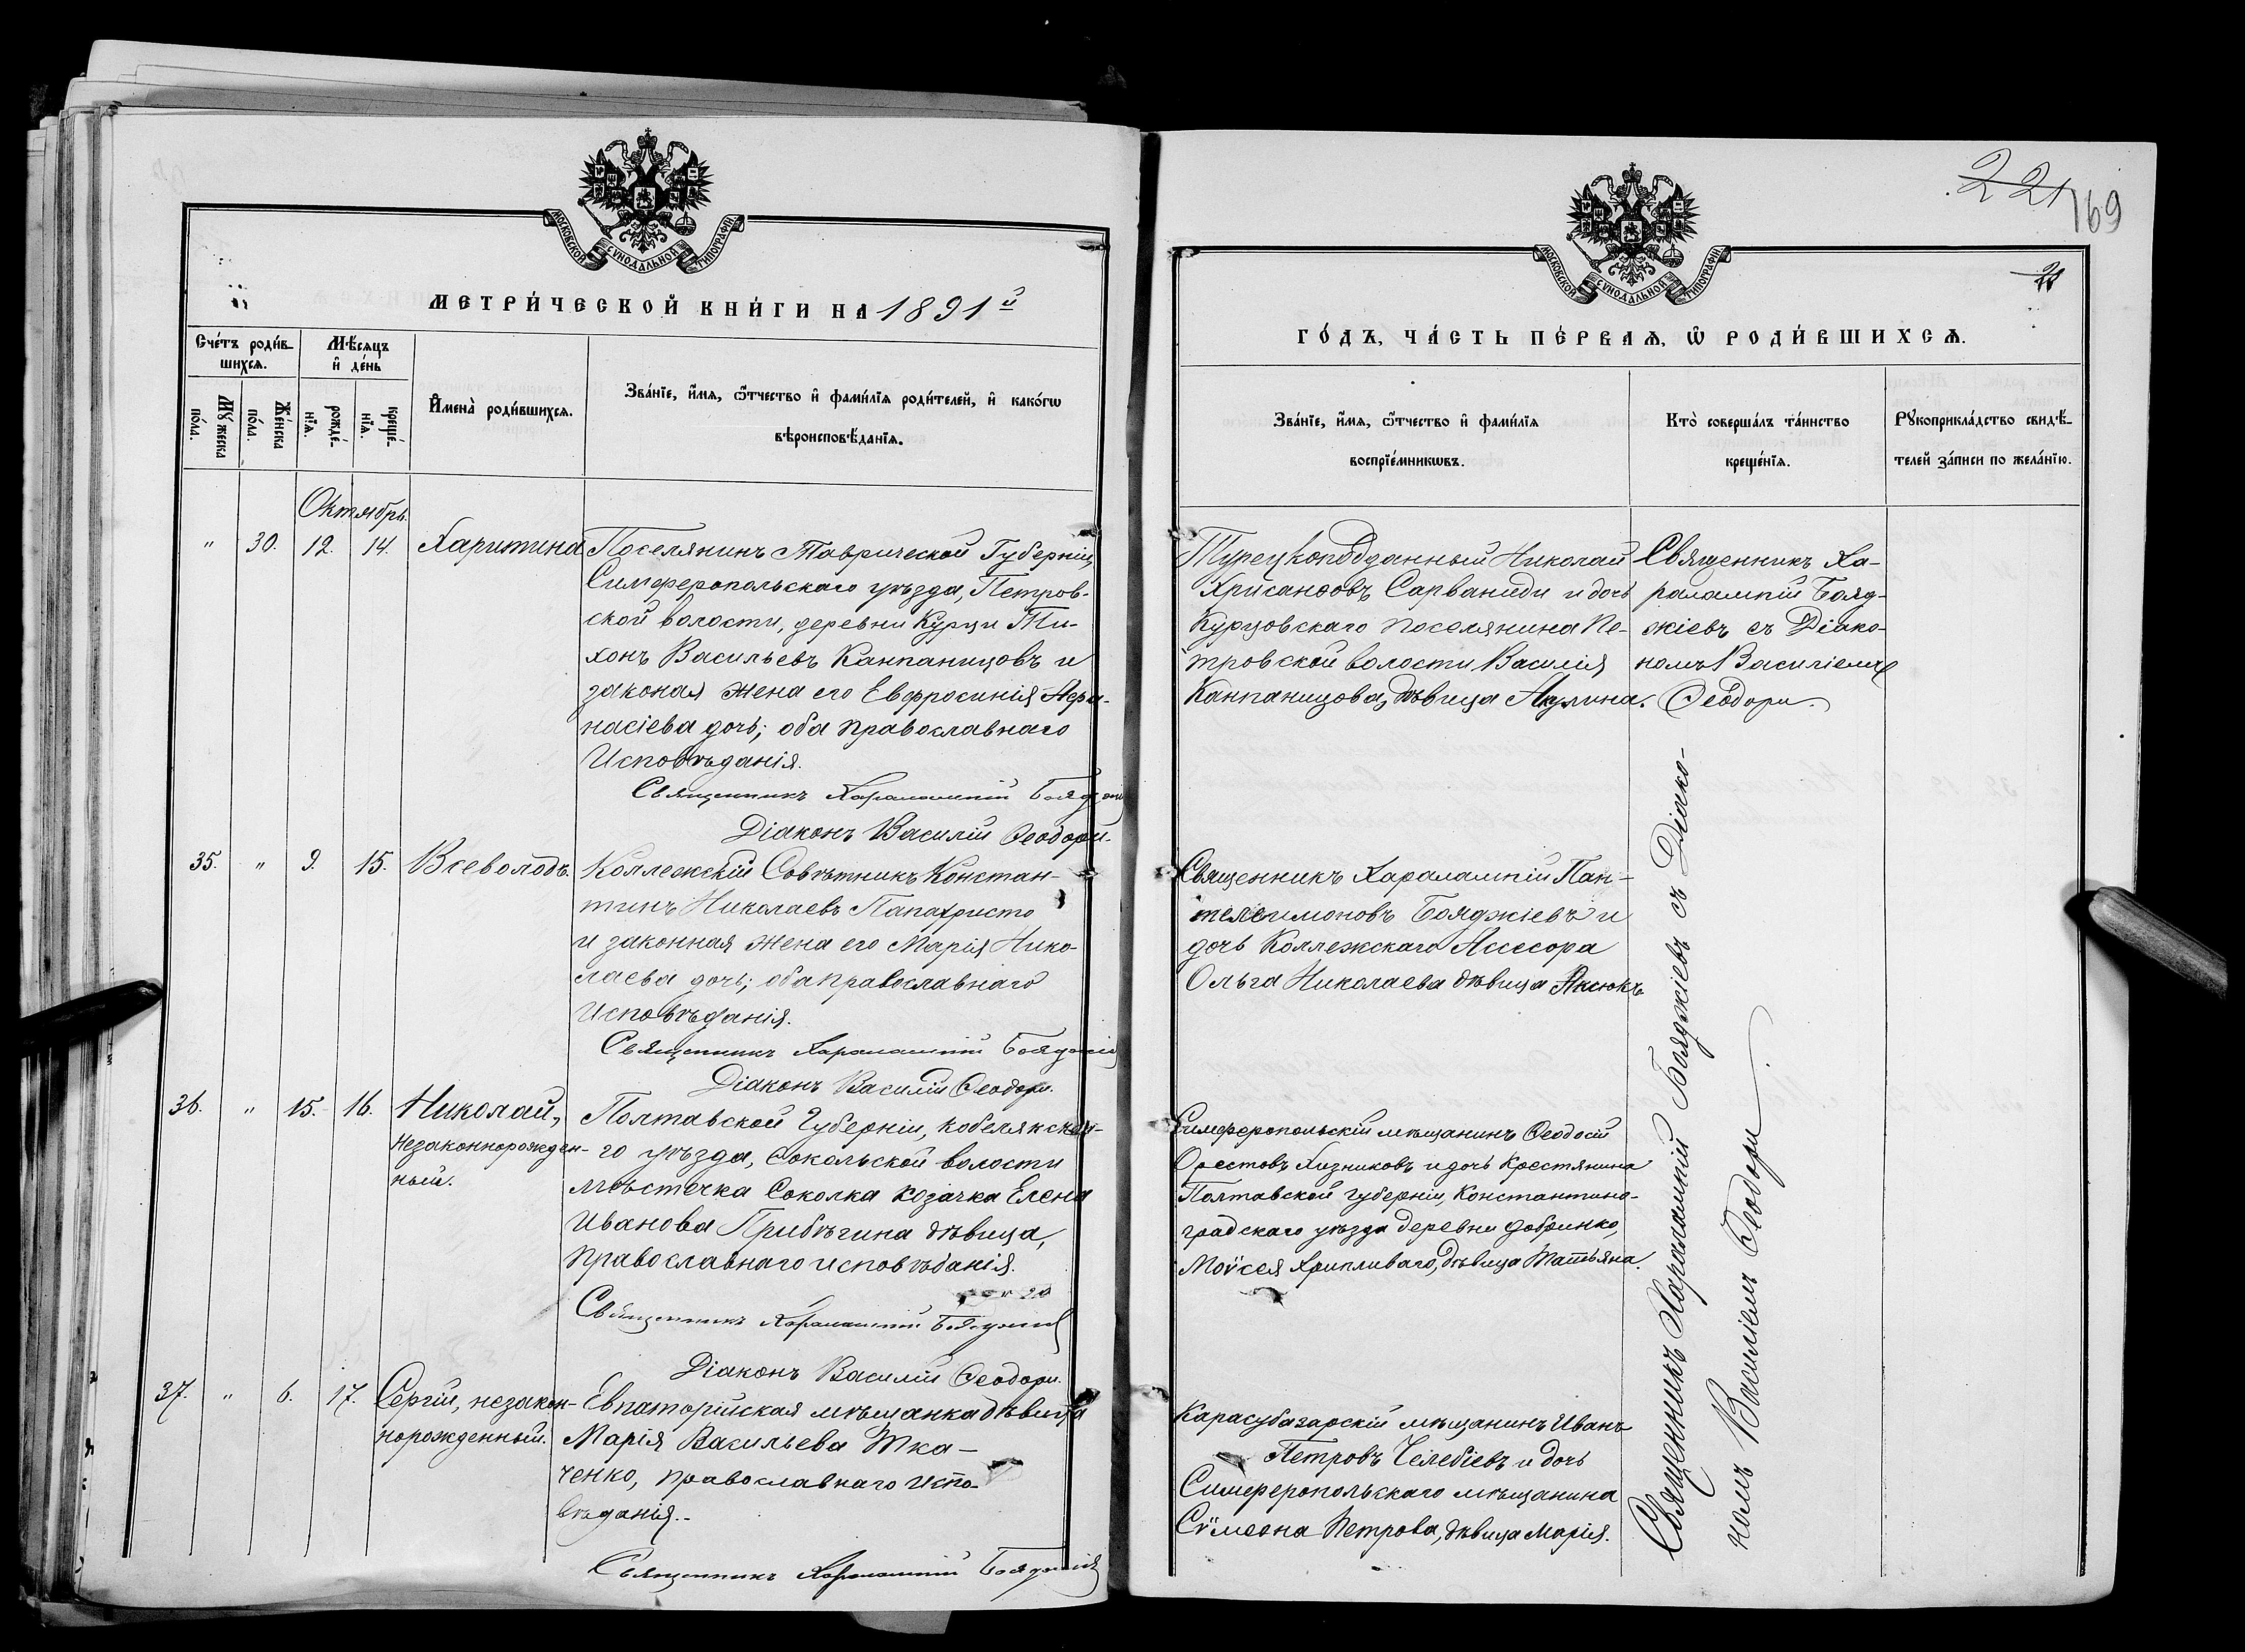 МОСКОВСКОЙ СѴНОДАЛЬНОЙ ТИПОГРАФІИ
МЕТРИ́ЧЕСКОЙ КНИ́ГИ НА 1891й
Сче́тъ роди́в-
шихсѧ.
Мѣ́сѧцъ
и҆ де́нь
Мꙋ́жеска
по́ла.
Же́нска
по́ла.
рожде́-
нїѧ.
креще́-
нїѧ.
И҆мена̀ роди́вшихсѧ.
Зва́нїе, и҆́мѧ, ѻ҆́тчество и҆ фами́лїѧ роди́телей, и҆ како́гѡ
вѣроисповѣ́данїѧ.
Октябрь.
" 30. 12. 14. Харитина
Поселянинъ Таврической Губерніи,
Симферопольскаго уѣзда, Петров-
ской волости, деревни Курци Ти-
хонъ Васильевъ Канпаницовъ и
законая жена его Евфросинія Аѳа-
насіева дочь; оба Православнаго
Исповѣданія.
Священникъ Харалампій Бояджи
Діаконъ Василій Ѳеодори.
35. " 9. 15. Всеволодъ.
Коллежскій Совѣтникъ Констан-
тинъ Николаевъ Папахристо
и законная жена его Марія Нико-
лаева дочь; оба Православнаго
Исповѣданія.
Священникъ Харалампій Бояджіе
Діаконъ Василій Ѳеодори.
36. " 15. 16. Николай,
незаконнорожден-
ный.
Полтавской Губерніи, Кобелякска-
го уѣзда, Сокольской волости
мѣстечка Соколка козачка Елена
Иванова Прибѣгина дѣвица,
Православнаго исповѣданія.
Священникъ Харалампій Бояджіе
Діаконъ Василій Ѳеодори.
37. " 6. 17. Сергій, незакон-
норожденный.
Евпаторійская мѣщанка дѣвица
Марія Васильева Тка-
ченко, Православнаго испо-
вѣданія.-
Священникъ Харалампій Бояджіе
221
169
МОСКОВСКОЙ СѴНОДАЛЬНОЙ ТИПОГРАФІИ
ГО́ДЪ, ЧА́СТЬ ПЕ́РВАѦ, Ѡ҆ РОДИ́ВШИХСѦ.
Зва́нїе, и҆́мѧ, ѻ҆́тчество и҆ фами́лїѧ
воспрїе́мникѡвъ.
Кто̀ соверша́лъ та́инство
креще́нїѧ.
Рꙋкоприкла́дство свидѣ́-
телей за́писи по жела́нїю.
Турецкоподданный Николай
Хрисанѳовъ Сарваниди и дочь
Курцовскаго Поселянина Пе-
тровской волости Василія
Канпаницова, дѣвица Акулина.
Священникъ Ха-
ралампій Бояд-
жіевъ съ Діако-
номъ Василіемъ
Ѳеодори.
Священникъ Харалампій Пан-
телеимоновъ Бояджіевъ и
дочь Коллежскаго Ассесора
Ольга Николаева дѣвица Аксюкъ
Симферопольскій мѣщанинъ Ѳеодосій
Орестовъ Хизниковъ и дочь Крестянина
Полтавской губерніи, Константино-
градскаго уѣзда деревни Добринко,
Моѵсея Хрипливаго, дѣвица Татьяна.
Карасубазарскій мѣщанинъ Иванъ
Петровъ Челебіевъ и дочь
Симферопольскаго мѣщанина
Сѵмеона Петрова, дѣвица Марія.
Священникъ Харалампій Бояджіевъ съ Діако-
номъ Василіемъ Ѳеодори.